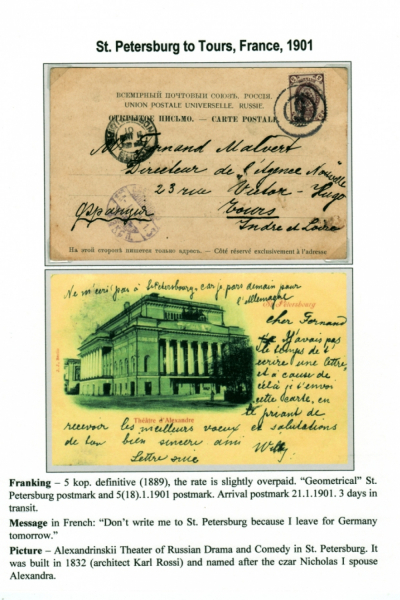 St. Petersburg to Tours, France, 1901
ВСЕМІРНЫЙ ПОЧТОВЫЙ СОЮЗЪ. РОССІЯ.
UNION POSTALE UNIVERSELLE. RUSSIE.
ОТКРЫТОЕ ПИСЬМО. — CARTE POSTALE
M. Fernand Malvert
Directeur de l'Agence Nouvelle
23 rue Victor-Hugo
Франція Tours
Indre et Loire
На этой сторонѣ пишется только адресъ. — Côté réservé exclusivement à l'adresse
Ne m'écris pas à St Petersbourg, car je pars demain pour
l'Allemagne
St. Petersbourg
cher Fernand
J'avais pas
le temps de t'
écrire une lettre,
et à cause de
cela je t'envoie
cette carte, en
te priant de
Théâtre d'Alexandre
recevoir les meilleurs voeux et salutations
de ton bien sincère ami
Willy
Lettre suit
Franking – 5 kop. definitive (1889), the rate is slightly overpaid. “Geometrical” St.
Petersburg postmark and 5(18).1.1901 postmark. Arrival postmark 21.1.1901. 3 days in
transit.
Message in French: “Don’t write me to St. Petersburg because I leave for Germany
tomorrow.”
Picture – Alexandrinskii Theater of Russian Drama and Comedy in St. Petersburg. It
was built in 1832 (architect Karl Rossi) and named after the czar Nicholas I spouse
Alexandra.